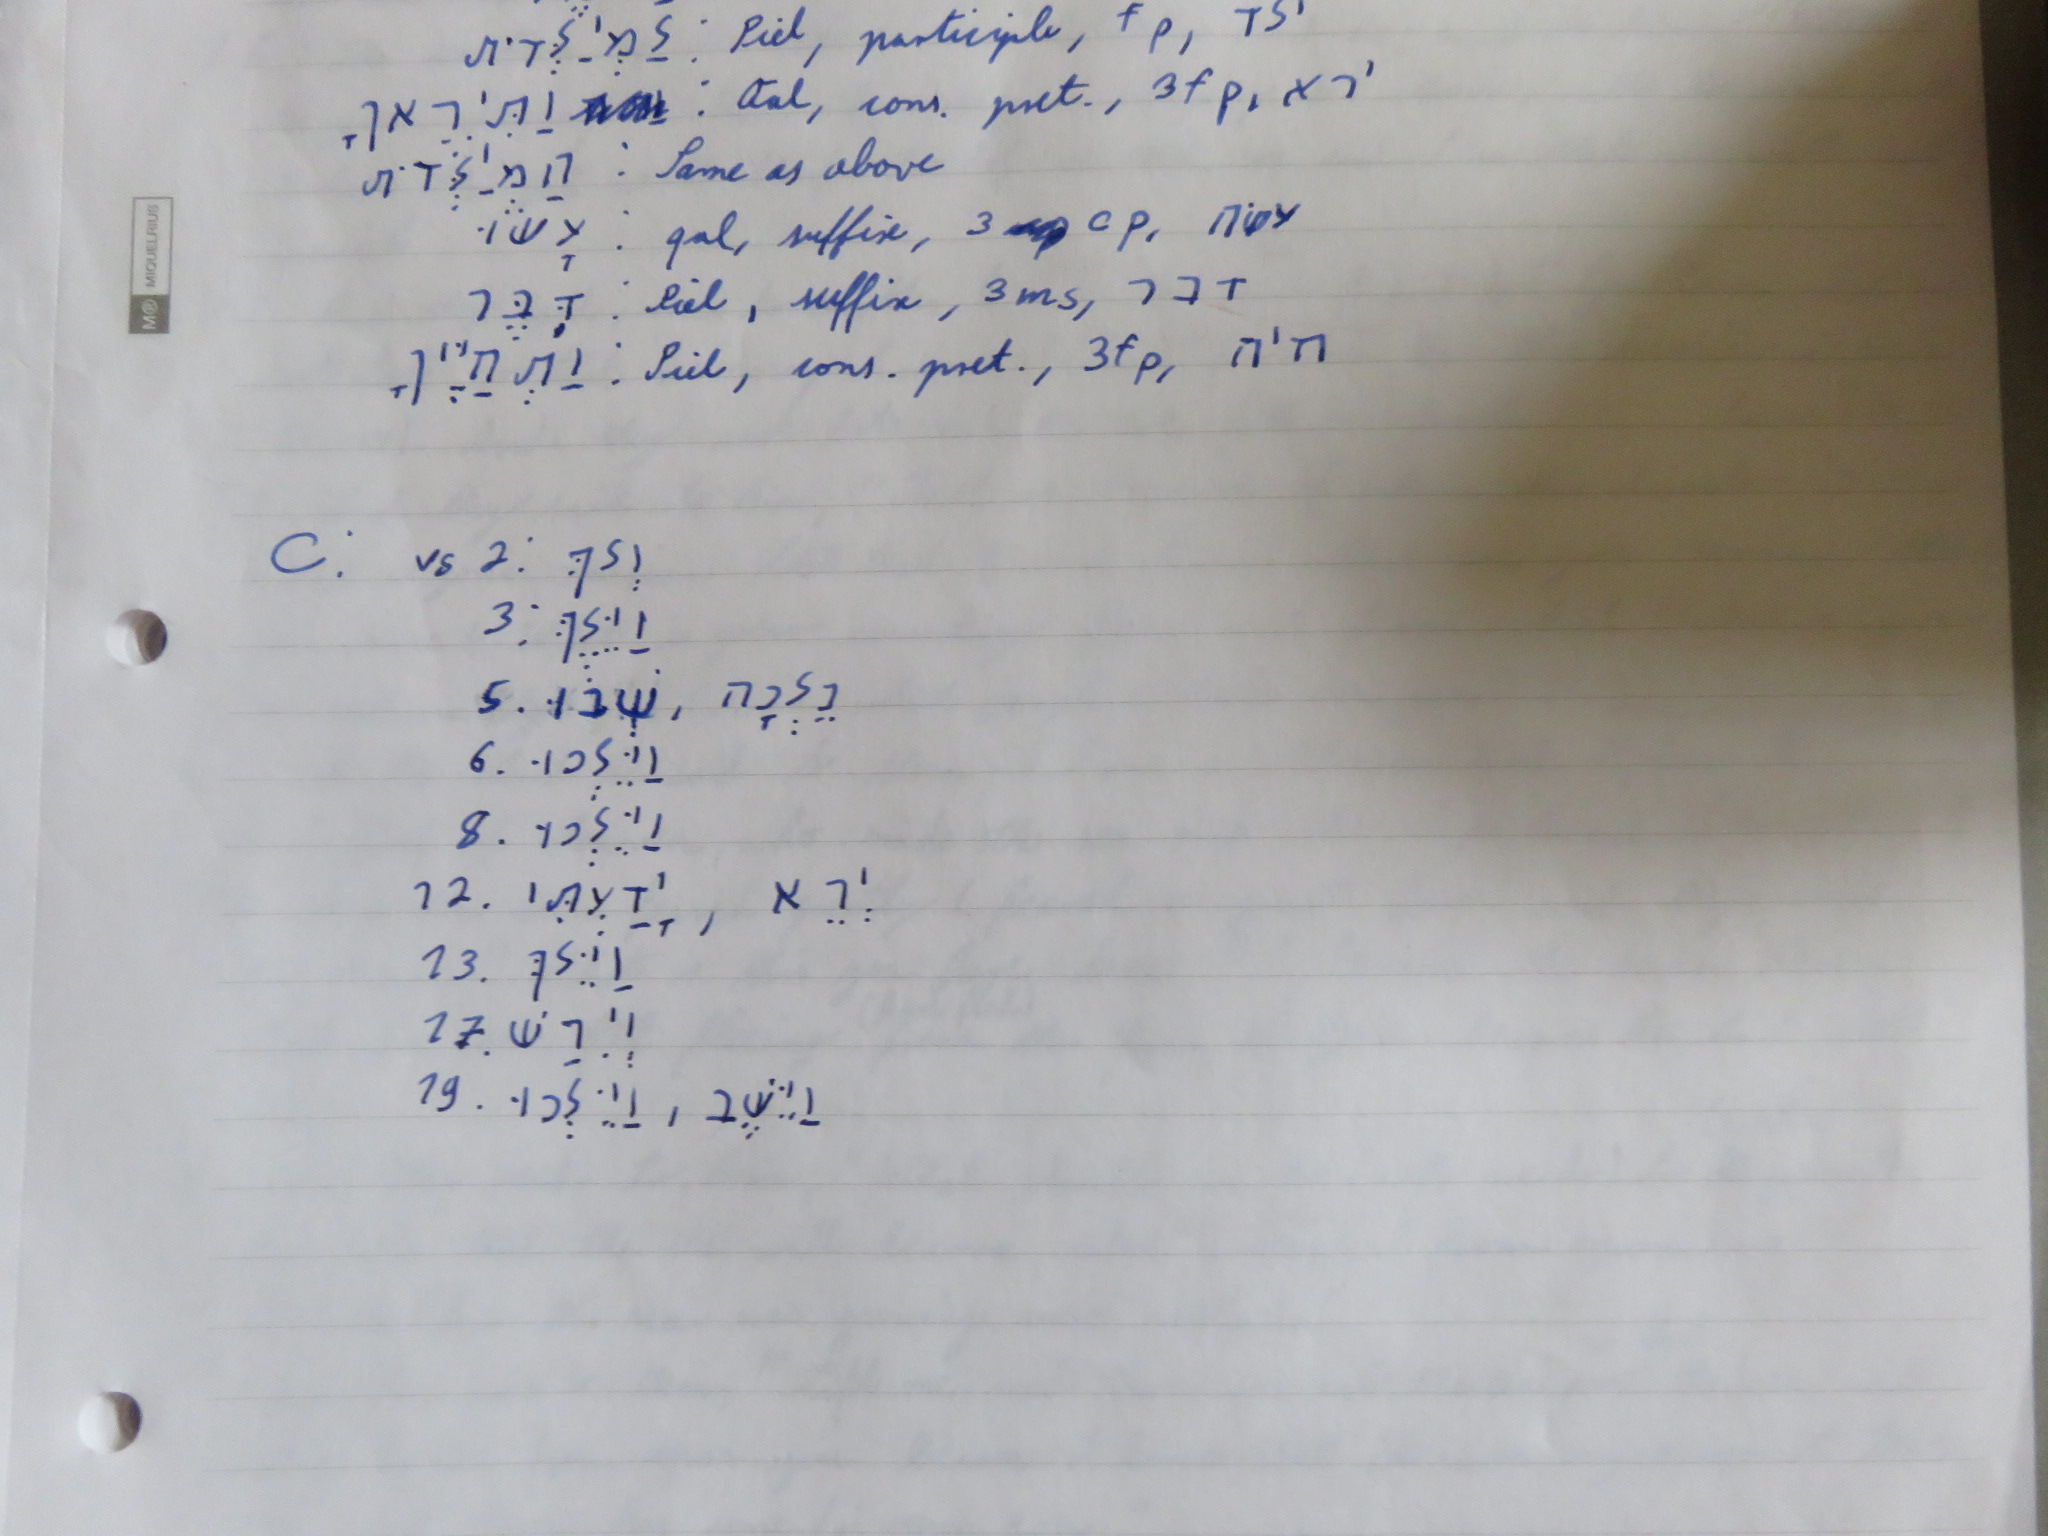 לַמְיַלְּדֹת : Piel, participle, fp, ילד
וַתִּירֶאןָ : Qal, cons. pret., 3fp, ירא
הַמְיַלְּדֹת : Same as above
עָשׂוּ : qal, suffix, 3 cp, עשׂה
דִּבֶּר : Piel, suffix, 3ms, דבר
וַתְּחַיֶּיןָ : Piel, cons. pret., 3fp, חיה
C: vs 2: וְלֶךְ
3: וַיֵּלֶךְ
5. שְׁבוּ, נֵלְכָה
6. וַיֵּלְכוּ
8. וַיֵּלְכוּ
12. יָדַעְתִּי, יְרֵא
13. וַיֵּלֶךְ
17. וְיִרַשׁ
19. וַיֵּלְכוּ, וַיֵּשֶׁב
M MIQUELRIUS